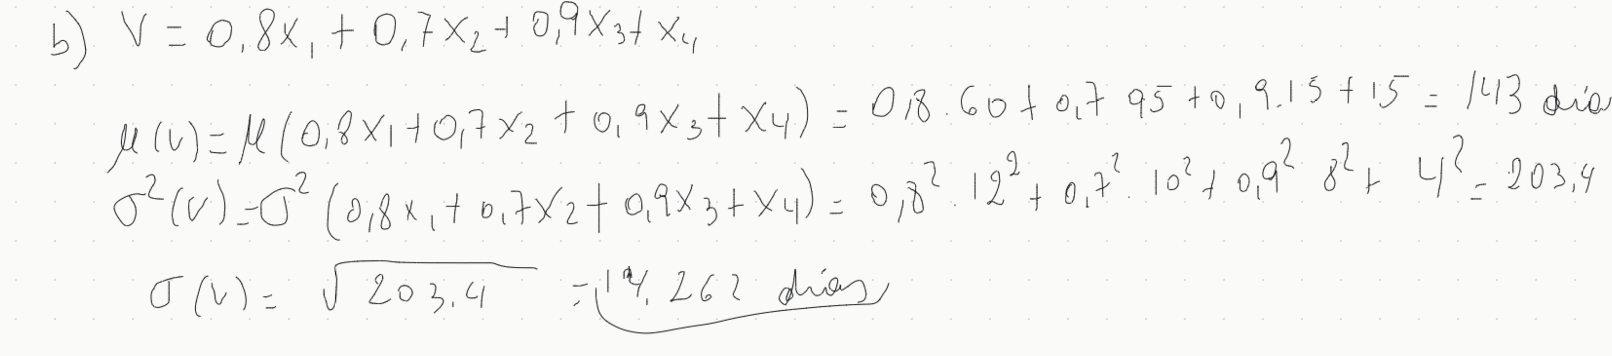 b) V = 0,8x₁ + 0,7x₂ + 0,9x₃ + x₄
μ(v) = μ(0,8x₁ + 0,7x₂ + 0,9x₃ + x₄) = 0,8 · 60 + 0,7 95 + 0,9 · 15 + 15 = 143 días
σ²(v) = σ²(0,8x₁ + 0,7x₂ + 0,9x₃ + x₄) = 0,8² · 12² + 0,7² · 10² + 0,9² 8² + 4² = 203,4
σ(v) = √203.4 = 14.262 días